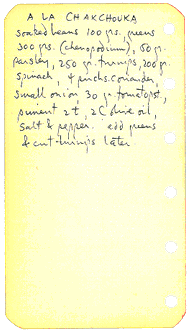 A LA CHAKCHOUKA
soaked beans 100 grs, greens
300 grs. (chenopodium), 50 gr.
parsley, 250 gr. turnips, 200 gr.
spinach, 4 pinchs. coriander,
small onion, 30 gr. tom. pst.,
piment 2 t, 2 C olive oil,
salt & pepper. add greens
& cut turnips later.